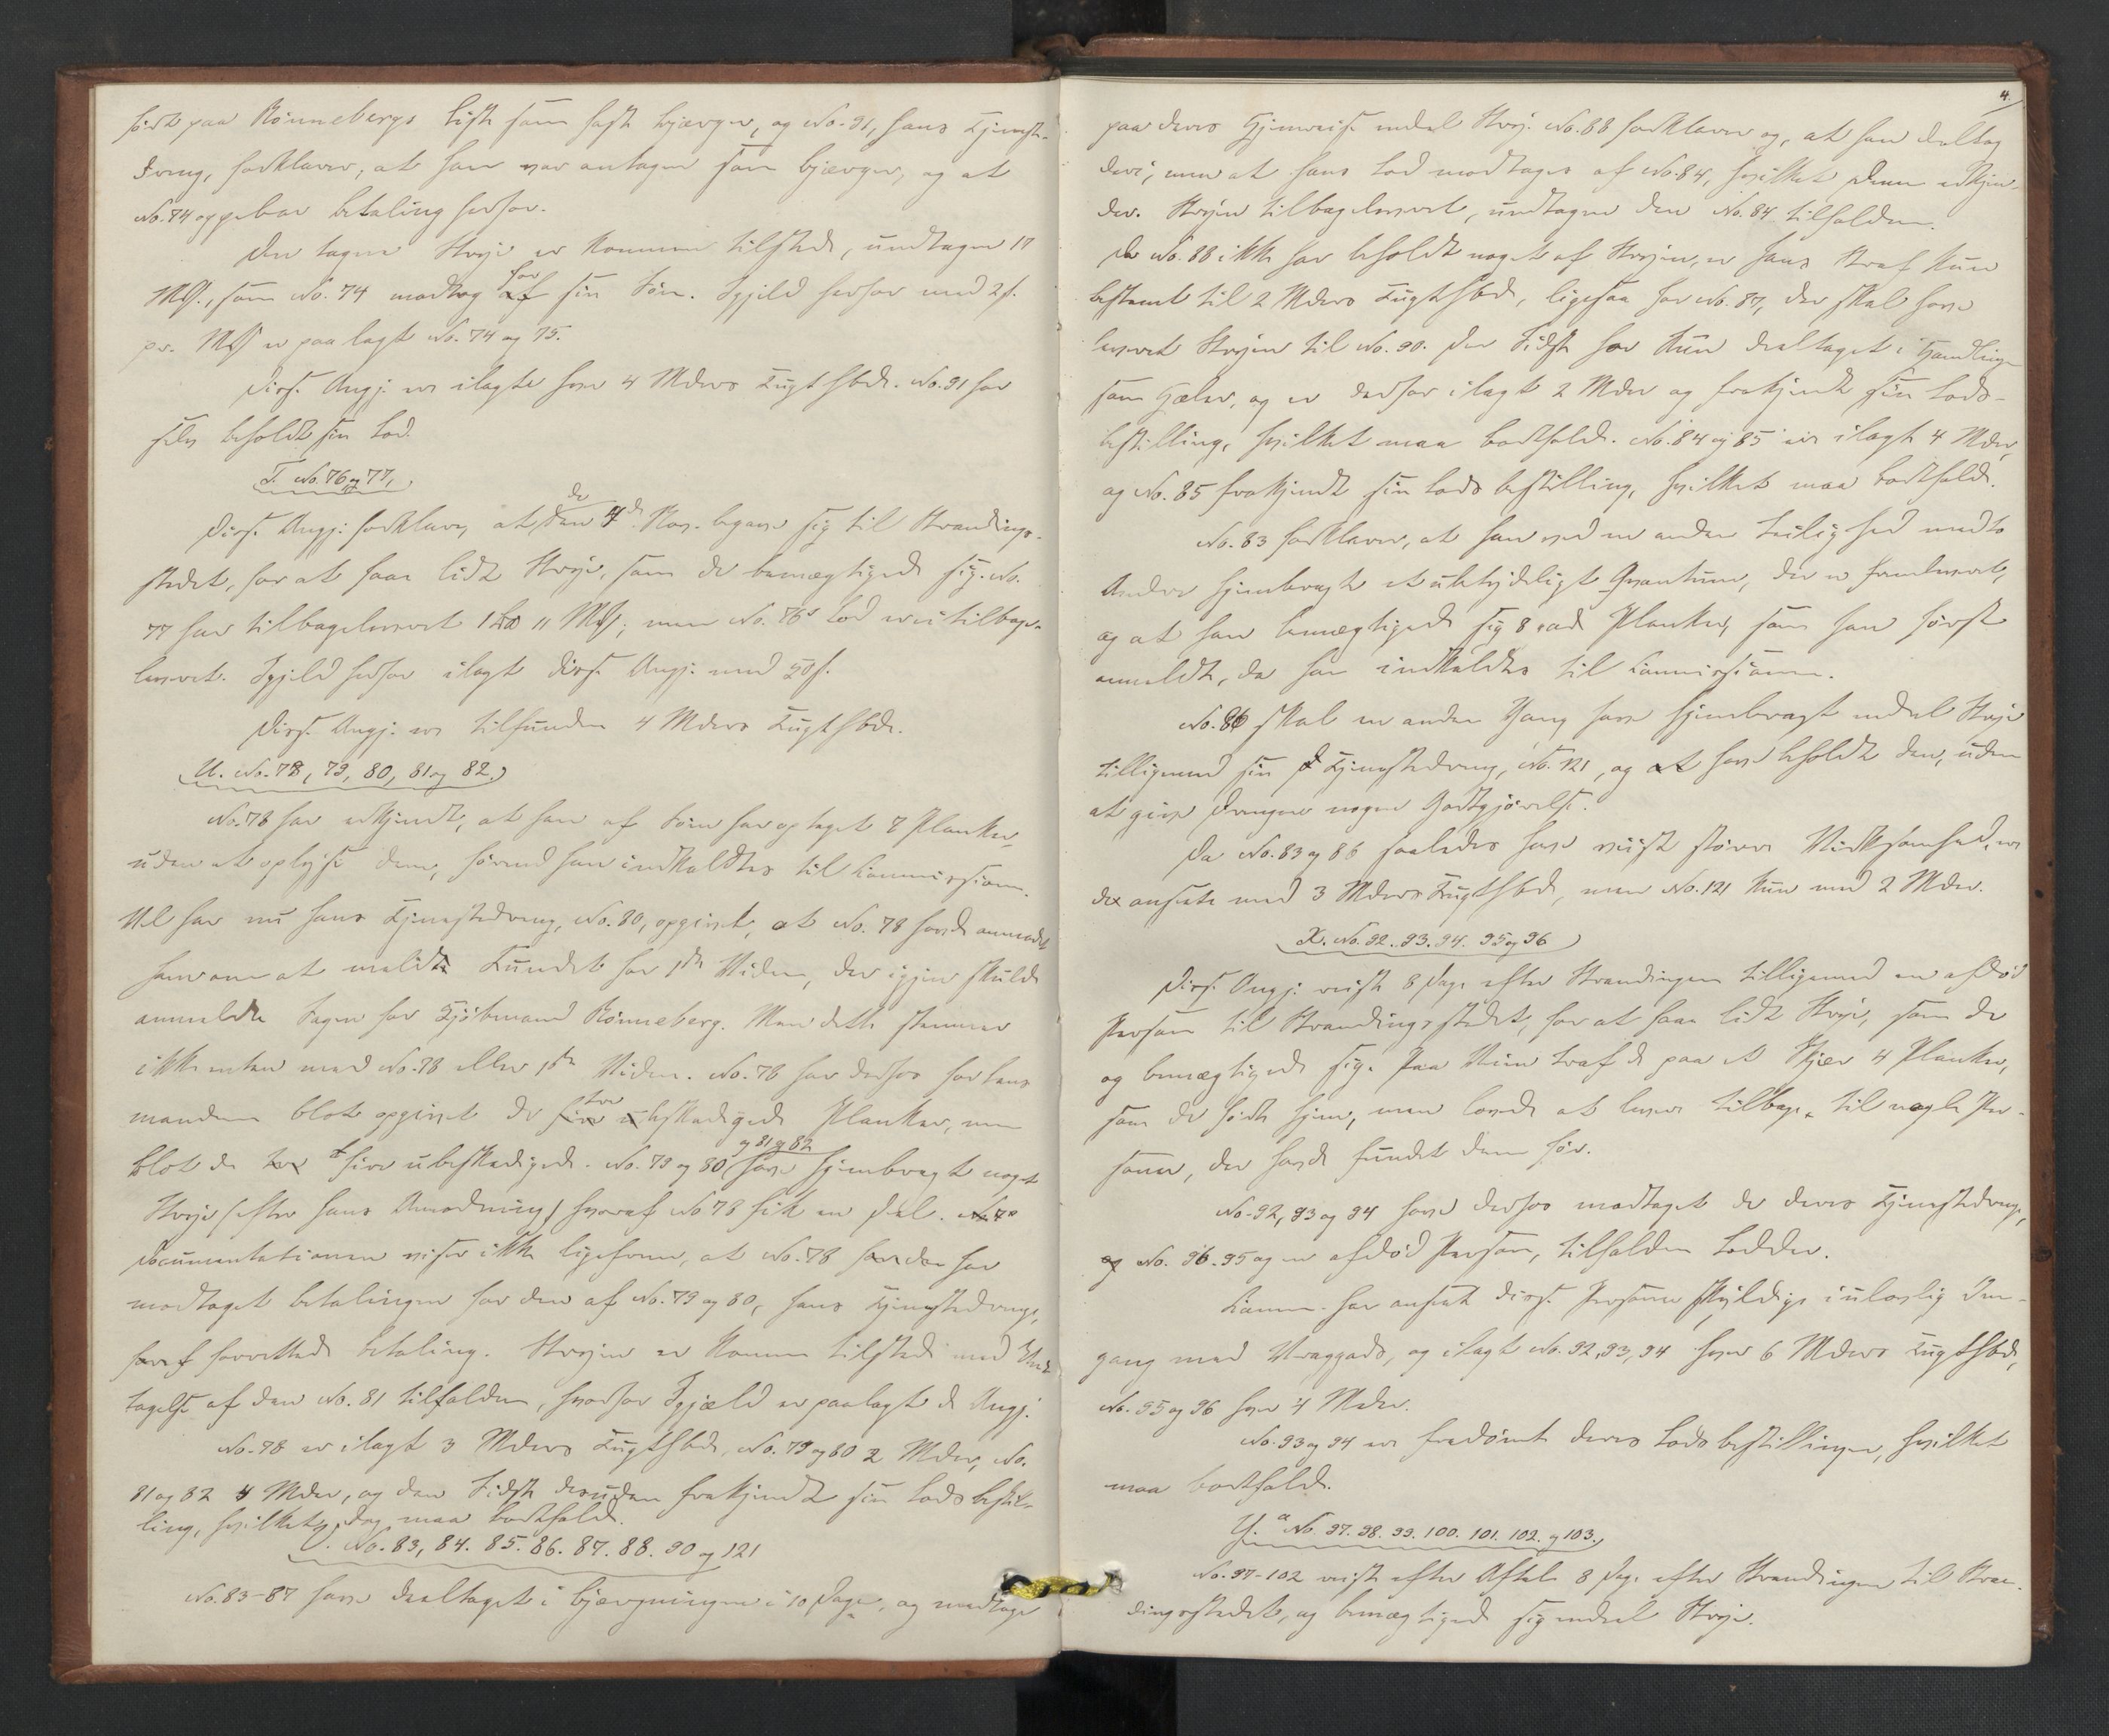 ført paa Rönnebergs Liste som fast bjærger, og No. 91, hans Tjeneste-
dreng, forklarer, at han var antagen som bjærger, og at
No. 74 oppebar betaling herfor.
Den tagne Stryie er kommen tilstede, undtagen 17
Mk., som No. 74 modtog af for sin Søn. Igjeld herfor med 2 s.
pr. Mk er paalagt No. 74 og 75.
Disse Angj. ere ilagte hver 4 Mdrs Tugthstr. No. 91 har
selv beholdt sin Lod.
T. No. 76 og 77,
Disse Angj. forklare, at den de 4de Nov. begave sig til Strandings-
stedet, for at faae lidt Stryie, som de bemægtigede sig. No.
77 har tilbageleveret 11 Mk; men No. 76s Lod er ei tilbage-
leveret. Igjeld herfor ilagt disse Angj. med 50 s.
Disse Angj. ere tilfunden 4 Mdrs Tugthstr.
U. No. 78, 79, 80, 81 og 82.
No. 78 har erkjendt, at han af Søen har optaget 7 Planker,
uden at oplyse dem, førend han indkaldtes til Commissionen.
Vel har nu hans Tjenestedreng, No. 80, opgivet, at No. 78 havde anmodet
ham om at melde Fundet for 1ste Vidne, der igjen skulde
anmelde Sagen for Kjöbmand Rönneberg. Men dette stemmer
ikke enten med No. 78 eller 1ste Vidne. No. 78 har derfor for Lens-
manden blot opgivet de fire tre ubeskadigede Planker, men
blot de tre fire ubeskadigede. No. 79 og 80 og 81 og 82 have hjembragt noget
Stryie (efter hans Anmodning) hvoraf No 78 fik en Del. No 78
Documentationen viser ikke ligefrem, at No. 78 har
modtaget betalingen for den af No. 79 og 80, hans Tjenestedrenge,
forrettede betaling. Stryien er kommen tilstede med Und-
tagelse af den No. 81 tilfaldne, hvorfor Igjæld er paalagt de Angj.
No. 78 er ilagt 3 Mdrs Tugthstr, No. 79 og 80 2 Mdr, No.
81 og 82 4 Mdr, og den Sidste desuden frakjendt sin Lodsbestil-
ling, hvilket dog maa bortfalde.
V. No. 83, 84. 85. 86. 87. 88. 90 og 121
No. 83-87 have deeltaget i bjærgningen i 10 Dage, og medtoge
4.
paa deres Hjemreise endel Stryi. No. 88 forklarer og, at han deltog
deri, men at hans Lod modtages af No. 84, hvilket denne erkjen-
der. Stryien tilbageleveret, undtagen den No. 84 tilfaldne.
Da No. 88 ikke har beholdt noget af Stryien, er hans Straf kun
bestemt til 2 Mdrs Tugthstr, ligesaa for No. 87, der skal have
leveret Stryien til No. 90. Den Sidste har kun deeltaget i Handlingen
som Hæler, og er derfor ilagt 2 Mdr og frakjendt sin Lods-
bestilling, hvilket maa bortfalde. No. 84 og 85 er ilagt 4 Mdr,
og No. 85 frakjendt sin Lodsbestilling, hvilket maa bortfalde.
No. 83 forklarer, at han ved en anden Leilighed med to
Andre hjembragte et ubetydeligt Qvantum, der er fremleveret,
og at han bemægtigede sig 8 rad Planker, som han først
anmeldte, da han indkaldtes til Commissionen.
No. 86 skal en anden Gang have hjembragt endel Stryie
tilligemed sin Tjenestedreng, No. 121, og at have beholdt den, uden
at give Drengen nogen Godtgjörelse.
Da No. 83 og 86 saaledes have viist større Virksomhed, er
de ansete med 3 Mdrs Tugthstr, men No. 121 kun med 2 Mdr.
X. No. 92. 93. 94. 95 og 96
Disse Angj. reiste 8 Dage efter Strandingen tilligemed en afdød
Person til Strandingsstedet, for at faae lidt Stryie, som de
og bemægtigede sig. Paa Veien traf de paa et Skjær 4 Planker,
som de førte hjem, men lovede at levere tilbage til nogle Per-
soner, der havde fundet dem før.
No. 92, 93 og 94 have derfor modtaget de deres Tjenestedrenge,
og No. 96. 95 og en afdød Person, tilfaldne Lodder.
Comm. har anseet disse Personer skyldige i ulovlig Om-
gang med Vraggods, og ilagt No. 92, 93, 94 hver 6 Mdrs Tugthstr,
No. 95 og 96 hver 4 Mdr.
No. 93 og 94 ere fradömte deres Lodsbestillinger, hvilket
maa bortfalde.
Y. a No. 97. 98. 99. 100. 101. 102. og 103.
No. 97-102 reiste efter Aftale 8 Dage efter Strandingen til Stran-
dingsstedet, og bemægtigede sig endeel Stryie.